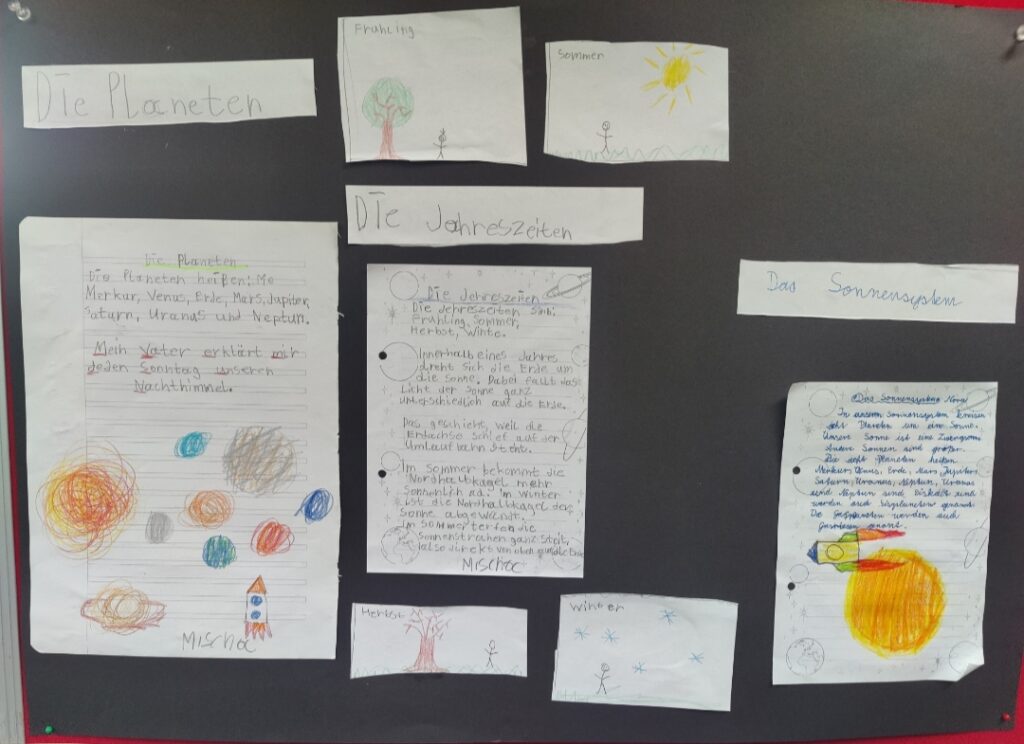 Die Planeten
Die Planeten
Die Planeten heißen: Me
Merkur, Venus, Erde, Mars, Jupiter,
Saturn, Uranas und Neptun.
Mein Vater erklärt mir
jeden Sonntag unseren
Nachthimmel.
Mischa
Frühling
Sommer
Die Jahreszeiten
Die Jehreszeiten
Die Jehreszeiten sind:
Frühling, Sommer,
Herbst, Winte.
Innerhalb eines Jahres
dreht sich die Erde um
die Sonne. Dabei fällt das
Licht der Sonne ganz
unterschiedlich auf die Erde.
Das geschieht, weil die
Erdachse schief auf der
Umlaufbahn steht.
Im Sommer bekommt die
Nordhalbkugel mehr
ab. Im Winter
ist die Nordhalbkugel der
Sonne abgewandt.
Im Sommer
Sonnenstrahlen ganz Steil,
also direkt von oben
Mischa
Herbst
Winter
Das Sonnensystem
Das Sonnensystem Nora
In unserem Sonnensystem kreisen
acht Planeten um eine Sonne.
Unsere Sonne ist eine
Andere Sonnen sind größer.
Die acht Planeten heißen
Merkur, Venus, Erde, Mars, Jupiter,
Saturn, Uranus, Neptun, Uranus
und Neptun sind und
werden auch Eisplaneten genannt.
Die Gasplaneten werden auch
genannt.